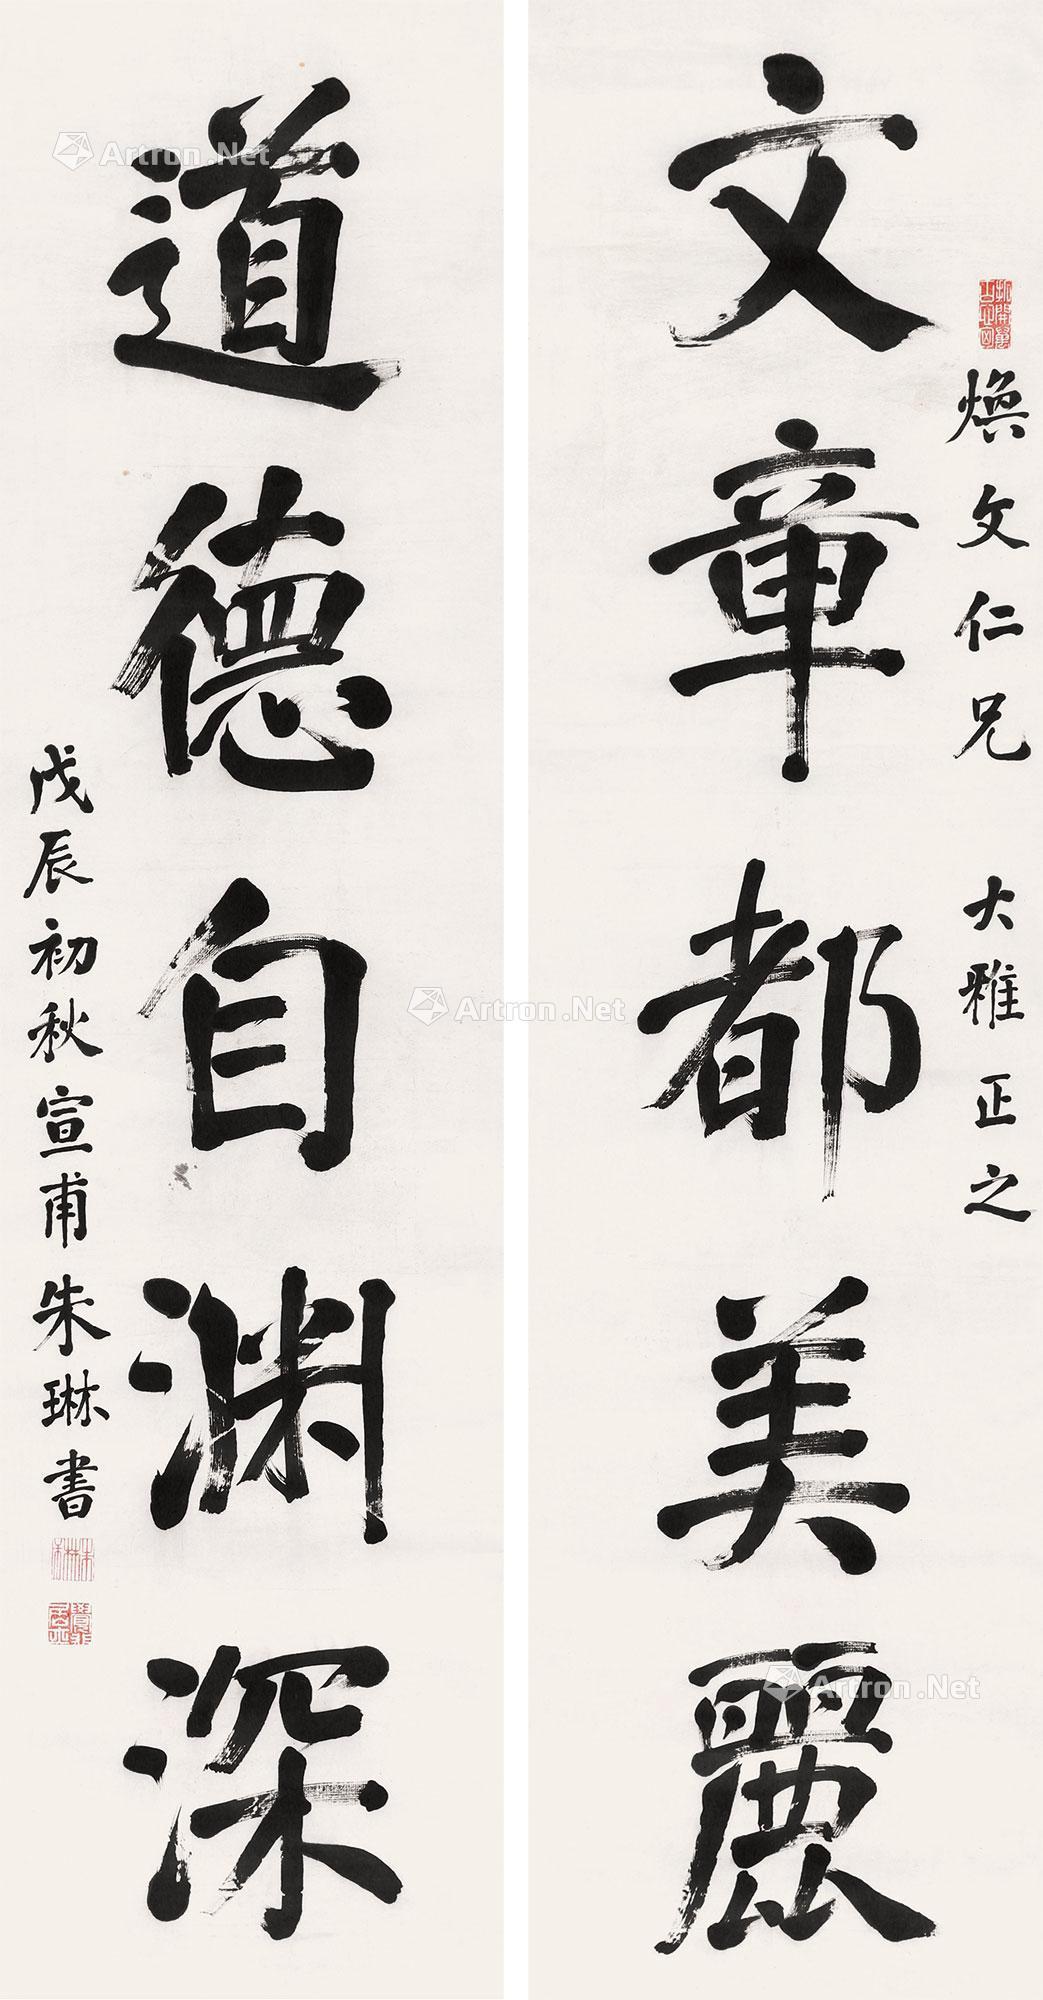 文章都美麗
煥文仁兄 大雅正之
道德自淵深
戊辰初秋宣甫朱琳書
Artron.Net
Artron.Net
Artron.Net